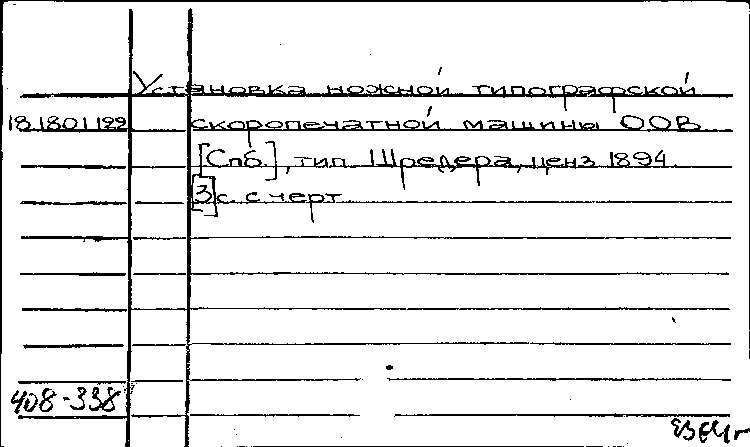 Установка ножной типографской
18.180.1.122 скоропечатной машины ООВ.
[Спб.], тип. Шредера, ценз. 1894.
[3]с. с черт.
408-338